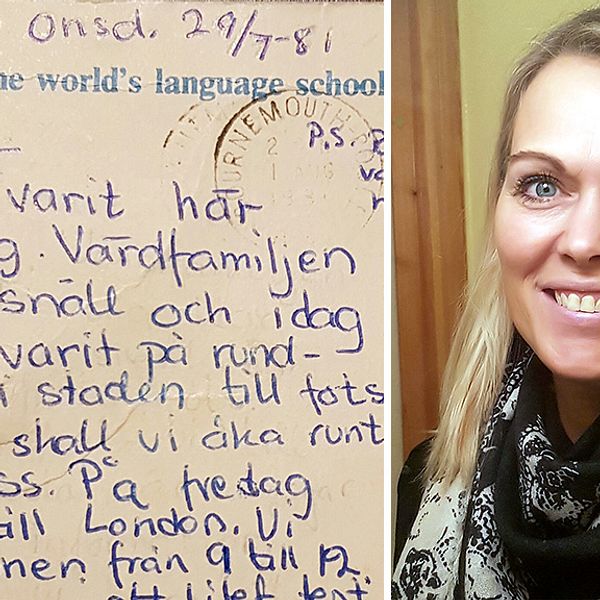 Onsd. 29/7-81
he world's language school
OURNEMOUTH
P.S.
varit här
g. Värdfamiljen
snäll och idag
varit på rund-
i staden till fots
skall vi åka runt
ss. På fredag
till London. Vi
nen från 9 till 12